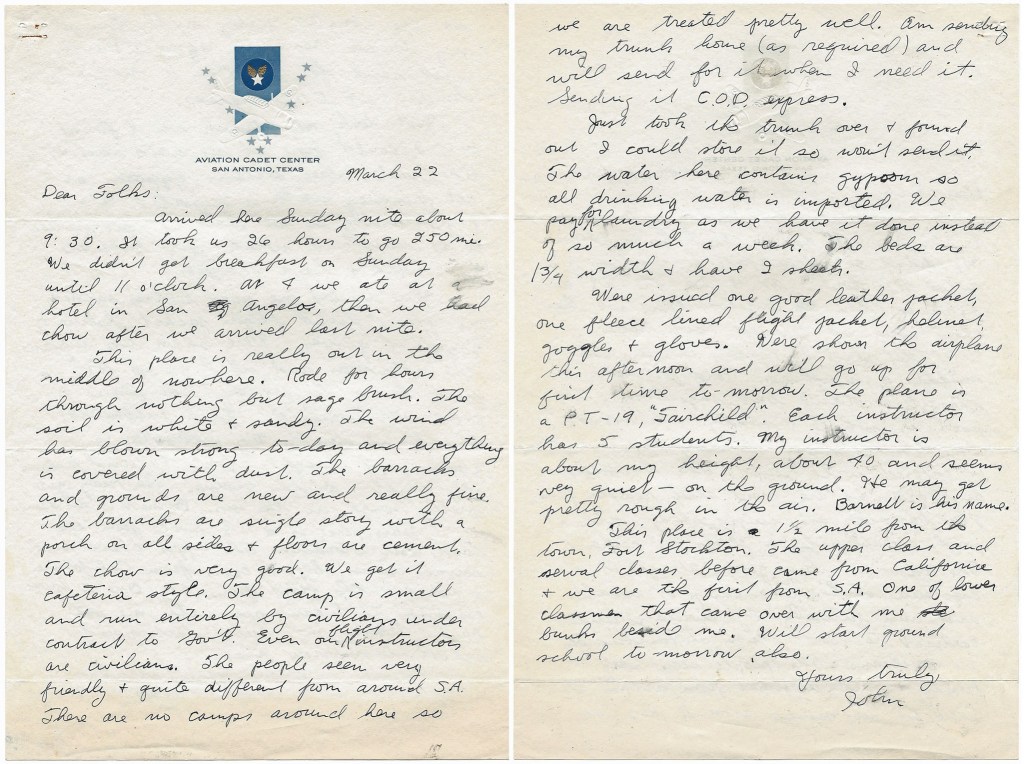 AVIATION CADET CENTER
SAN ANTONIO, TEXAS
March 22
Dear Folks:
Arrived here Sunday nite about
9:30. It took us 26 hours to go 250 mi.
We didn't get breakfast on Sunday
until 11 o'clock. At 4 we ate at a
hotel in San Angelos, then we had
chow after we arrived last nite.
This place is really out in the
middle of nowhere. Rode for hours
through nothing but sage brush. The
soil is white & sandy. The wind
has blown strong to-day and everything
is covered with dust. The barracks
and grounds are new and really fine.
The barracks are single story with a
porch on all sides & floors are cement.
The chow is very good. We get it
cafeteria style. The camp is small
and run entirely by civilians under
contract to Gov't. Even our flight instructors
are civilians. The people seen very
friendly & quite different from around S.A.
There are no camps around here so
we are treated pretty well. Am sending
my trunk home (as required) and
will send for it when I need it.
Sending it C.O.D. express.
Just took the trunk over & found
out I could store it so won't send it.
The water here contains gypsom so
all drinking water is imported. We
pay for laundry as we have it done instead
of so much a week. The beds are
1 3/4 width & have 2 sheets.
Were issued one good leather jacket,
one fleece lined flight jacket, helmet,
goggles & gloves. Were shown the airplane
this afternoon and will go up for
first time to-morrow. The plane is
a P.T-19, "Fairchild". Each instructor
has 5 students. My instructor is
about my height, about 40 and seems
very quiet — on the ground. He may get
pretty rough in the air. Barnett is his name.
This place is a 1 1/2 mile from the
town, Fort Stockton. The upper class and
serval classes before came from California
& we are the first from S.A. One of lower
classmen that came over with me
bunks me. Will start ground
school to-morrow also.
Yours truly
John